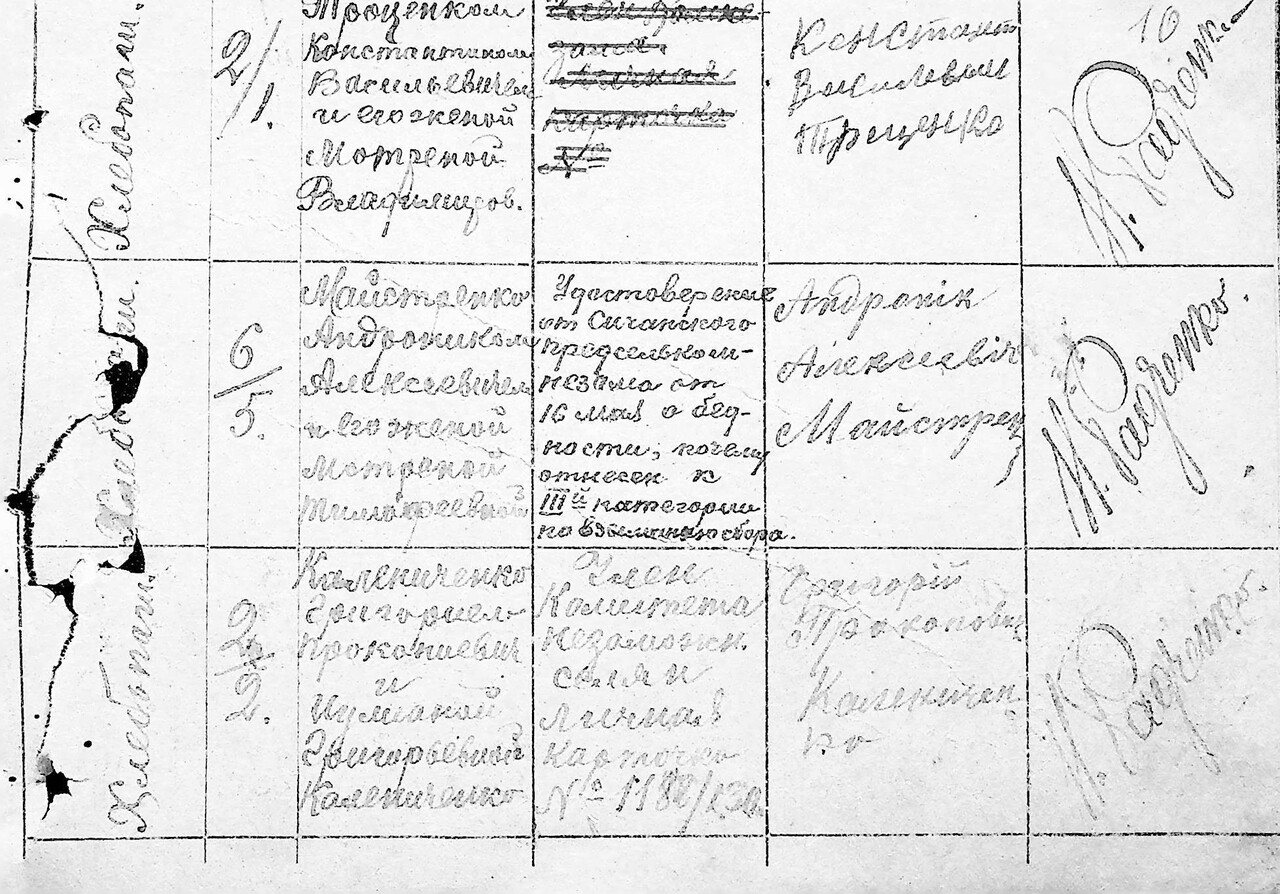 Хлебопаш.
2/1.
Троценком
Константином
Васильевичем
и его женой
Мотреной
Владимиров.
№
Констант
Василевич
Троценко
10
Н. Радченк.
Хлебопаш.
6/5.
Майстренко
Андроником
Алексеевичем
и его женой
Мотреной
Тимофеевной
Удостоверение
от Сичанского
предсельком-
незама от
16 мая о бед-
ности, почему
отнесен к
IIIй категории
по взыманию сбора.
Андронік
Алексеевіч
Майстрен
Н. Радченко.
Хлебопаш.
2/2.
Калениченко
Григорием
Прокопиевич
и
Иулианой
Григорьевной
Калениченко
Член
Комитета
Незаможн.
селян
Личная
Карточка
№
Григорій
Прокопович
Каленичен
ко
Н. Радченко.